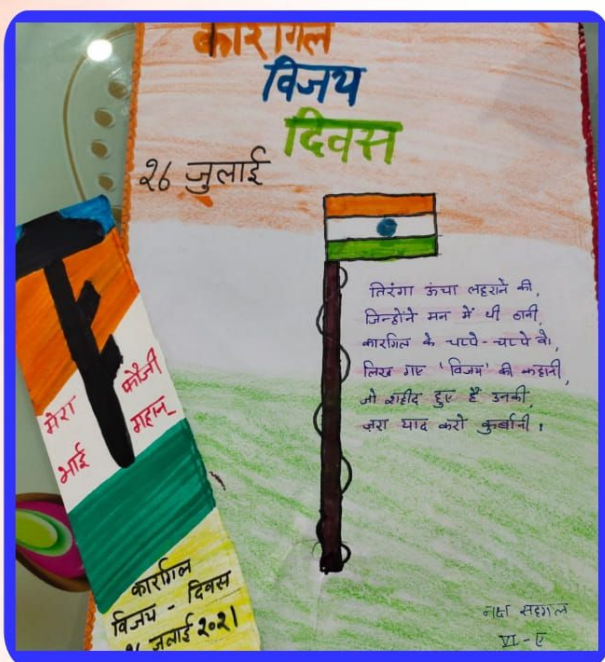 कारगिल
विजय
दिवस
२६ जुलाई
तिरंगा ऊंचा लहराने की,
जिन्होंने मन में थी ठानी,
कारगिल के चप्पे-चप्पे पे,
लिख गए 'विजय' की कहानी,
जो शहीद हुए हैं उनकी,
ज़रा याद करो कुर्बानी।
नक्ष सहगल
VI-ए
मेरा फौजी
भाई महान्
कारगिल
विजय - दिवस
२६ जुलाई २०२१